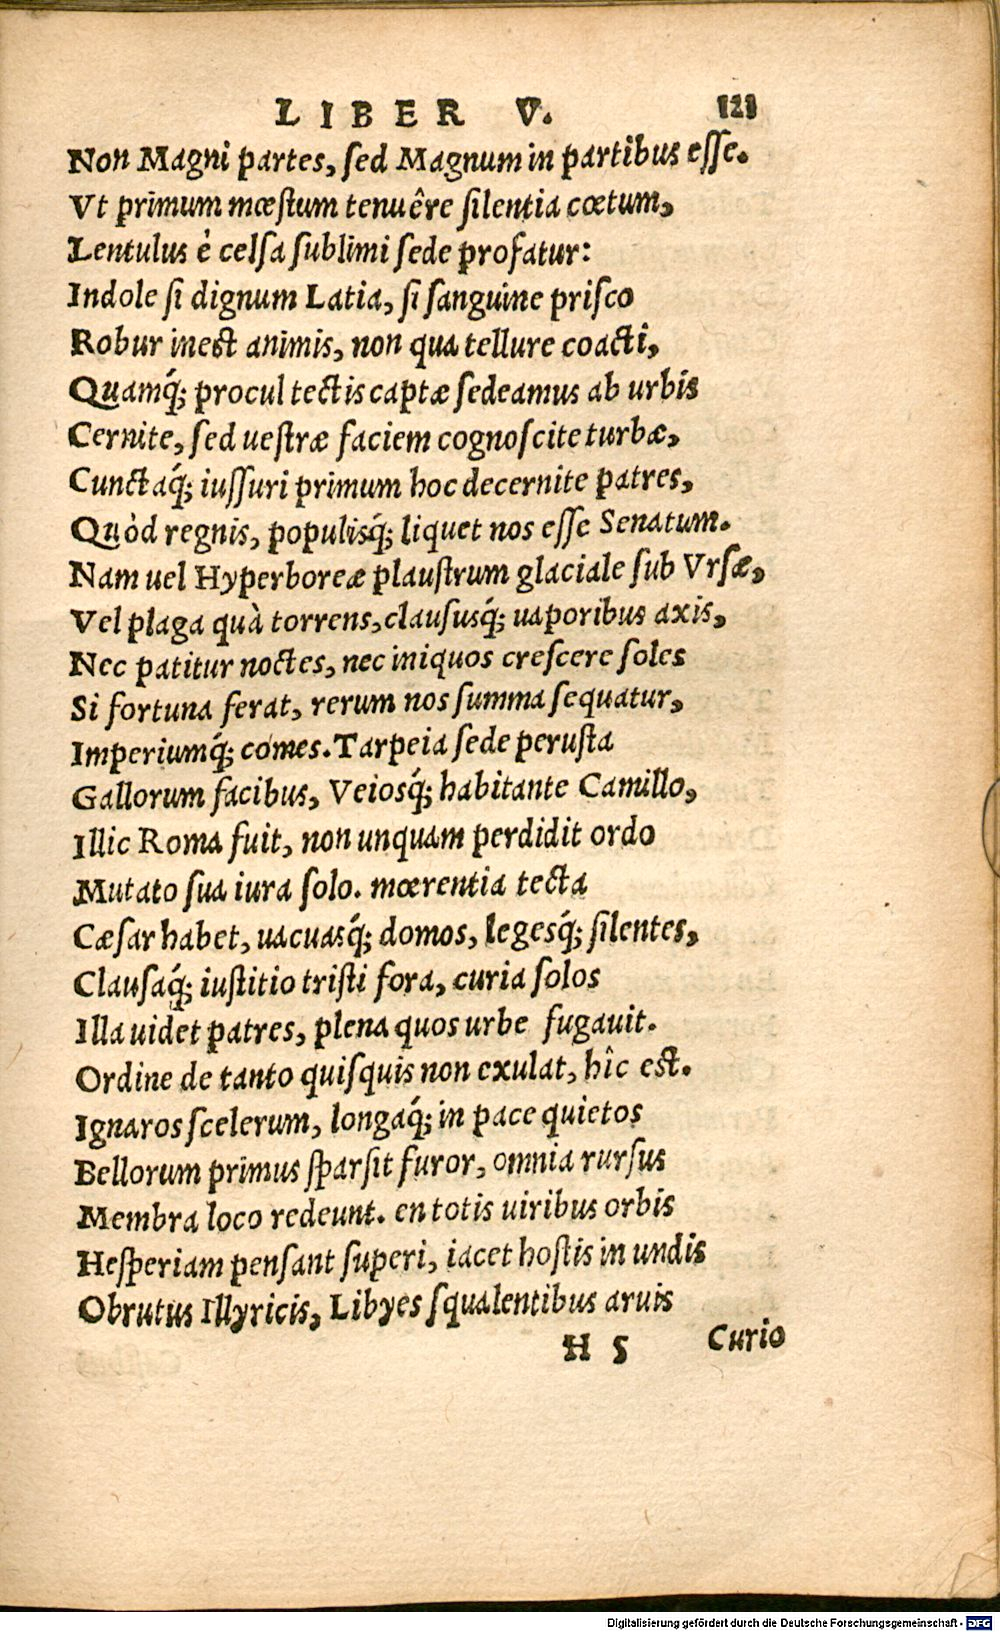 LIBER V. 121
Non Magni partes, sed Magnum in partibus esse.
Vt primum mœstum tenuêre silentia cœtum,
Lentulus è celsa sublimi sede profatur:
Indole si dignum Latia, si sanguine prisco
Robur inest animis, non qua tellure coacti,
Quamq́; procul tectis captæ sedeamus ab urbis
Cernite, sed uestræ faciem cognoscite turbæ,
Cunctaq́; iussuri primum hoc decernite patres,
Quòd regnis, populisq́; liquet nos esse Senatum.
Nam uel Hyperboreæ plaustrum glaciale sub Vrsæ,
Vel plaga quà torrens, claususq́; uaporibus axis,
Nec patitur noctes, nec iniquos crescere soles
Si fortuna ferat, rerum nos summa sequatur,
Imperiumq́; comes. Tarpeia sede perusta
Gallorum facibus, Veiosq́; habitante Camillo,
Illic Roma fuit, non unquam perdidit ordo
Mutato sua iura solo. mœrentia tecta
Cæsar habet, uacuasq́; domos, legesq́; silentes,
Clausaq́; iustitio tristi fora, curia solos
Illa uidet patres, plena quos urbe fugauit.
Ordine de tanto quisquis non exulat, hîc est.
Ignaros scelerum, longaq́; in pace quietos
Bellorum primus sparsit furor, omnia rursus
Membra loco redeunt. en totis uiribus orbis
Hesperiam pensant superi, iacet hostis in undis
Obrutus Illyricis, Libyes squalentibus aruis
H 5 Curio
Digitalisierung gefördert durch die Deutsche Forschungsgemeinschaft - DFG